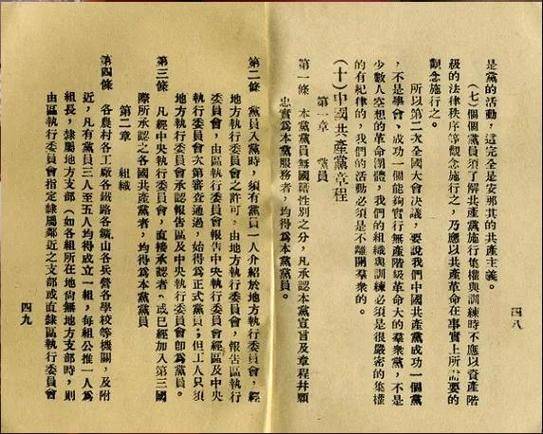 四八
是黨的活動，這完全是安那其的共產主義。
（七）個個黨員須了解共產黨施行集權與訓練時不應以資產階
級的法律秩序等觀念施行之，乃應以共產革命在事實上所需要的
觀念施行之。
所以第二次全國大會決議，要說我們中國共產黨成功一個黨
，不是學會，成功一個能夠實行無產階級革命大的羣衆黨，不是
少數人空想的革命團體，我們的組織與訓練必須是很嚴密的集權
的有紀律的，我們的活動必須是不離開羣衆的。
（十）中國共產黨章程
第一章　黨員
第一條　本黨黨員無國籍性別之分，凡承認本黨宣言及章程幷願
忠實爲本黨服務者，均得爲本黨黨員。
第二條　黨員入黨時，須有黨員一人介紹於地方執行委員會，經
地方執行委員會之許可，由地方執行委員會，報告區執行
委員會，由區執行委員會報告中央執行委員會經區及中央
執行委員會次第審査通過，始得爲正式黨員；但工人只須
地方執行委員會承認報告區及中央執行委員會卽爲黨員。
第三條　凡經中央執行委員會，直接承認者，或已經加入第三國
際所承認之各國共產黨者，均得爲本黨黨員
第二章　組織
第四條　各農村各工廠各鐵路各鑛山各兵營各學校等機關，及附
近，凡有黨員三人至五人均得成立一組，每組公推一人爲
組長，隸屬地方支部（如各組所在地尙無地方支部時，則
由區執行委員會指定隸屬鄰近之支部或直隸區執行委員會
四九